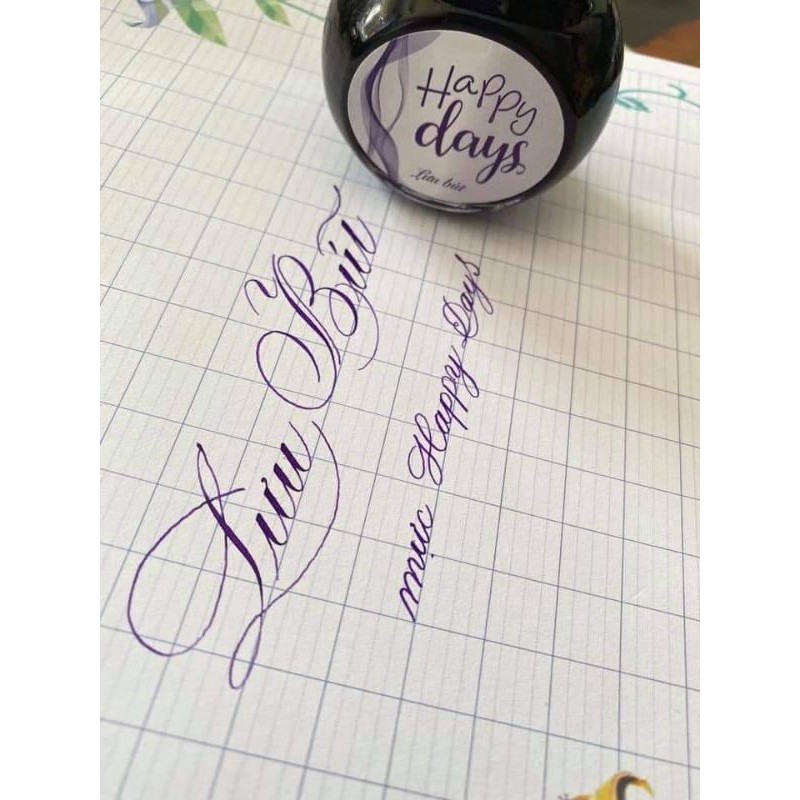 Happy
days
Lưu bút
Lưu Bút
mực Happy Days